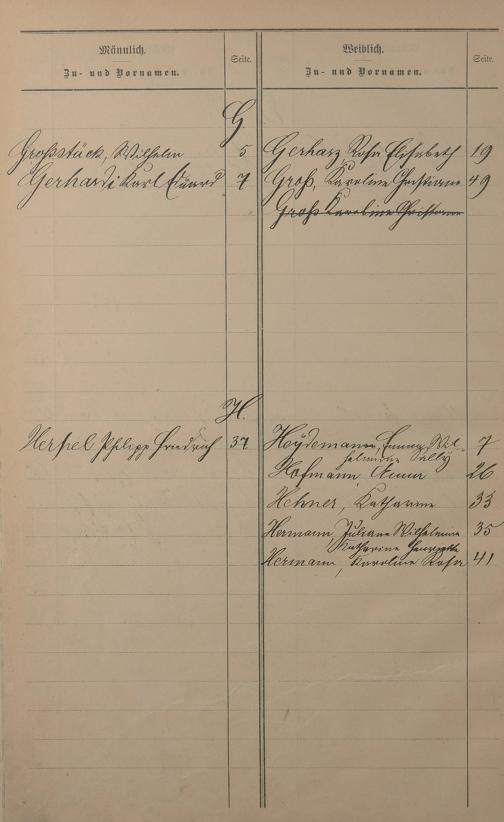 Männlich.
Zu- und Vornamen.
Seite.
Weiblich.
Zu- und Vornamen.
Seite.
G.
Großstück, Wilhelm 5
Gerhardi Karl Eduard 7
Gerharz, Rosa Elisabeth 19
Groß, Karoline Christiane 49
Groß Karoline Christiane
H.
Herpel Philipp Friedrich 37
Heydemann, Emma, Wil- 7
helmine Sally
Hofmann, Anna 26
Hehner, Katharine 33
Hermann, Juliane Wilhelmine 35
Katharine Henriette
Hermann, Karoline Rosa 41